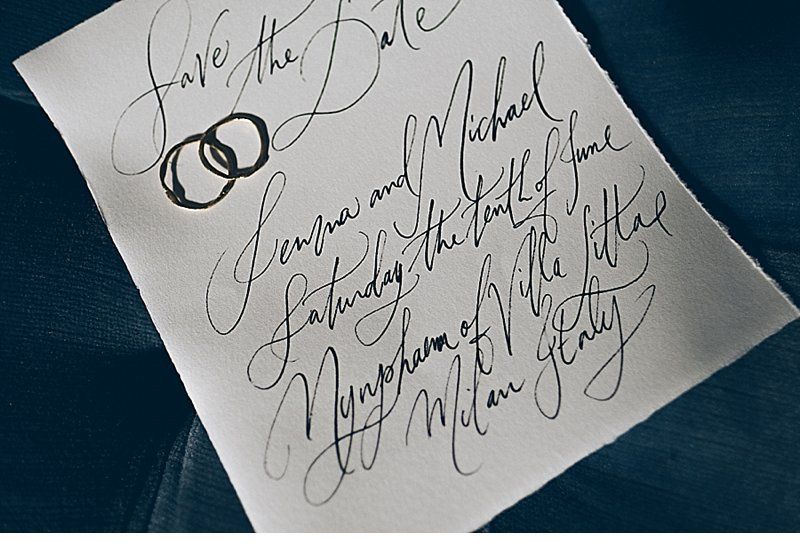 Save the Date
Jemma and Michael
Saturday, the tenth of June
Nynphaeum of Villa Littae
Milan Italy